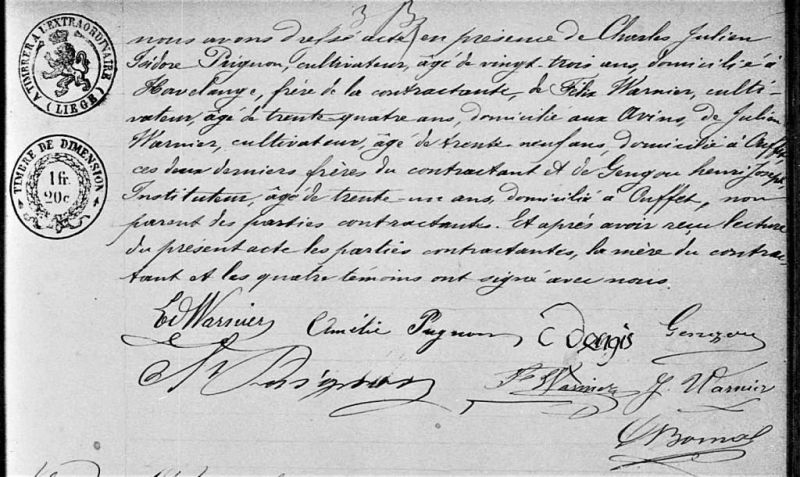 A TIMBRER A L'EXTRAORDINAIRE
(LIEGE)
TIMBRE DE DIMENSION
1 fr.
20 c
nous avons dressé acte, en présence de Charles Julien
Isidore Prignon, cultivateur, âgé de vingt-trois ans, domicilié à
Havelange, frère de la contractante, de Félix Warnier, culti-
vateur, âgé de trente-quatre ans, domicilié aux Avins, de Julien
Warnier, cultivateur, âgé de trente-neuf ans, domicilié à Ouffet
ces deux derniers frères du contractant et de Gengou henri Joseph
Instituteur, âgé de trente-un ans, domicilié à Ouffet, non
parent des parties contractantes. Et après avoir reçu lecture
du présent acte les parties contractantes, la mère du contrac-
tant et les quatre témoins ont signé avec nous.
Ed Warnier Amélie Prignon C Dengis Gengou
Prignon F Warnier J. Warnier